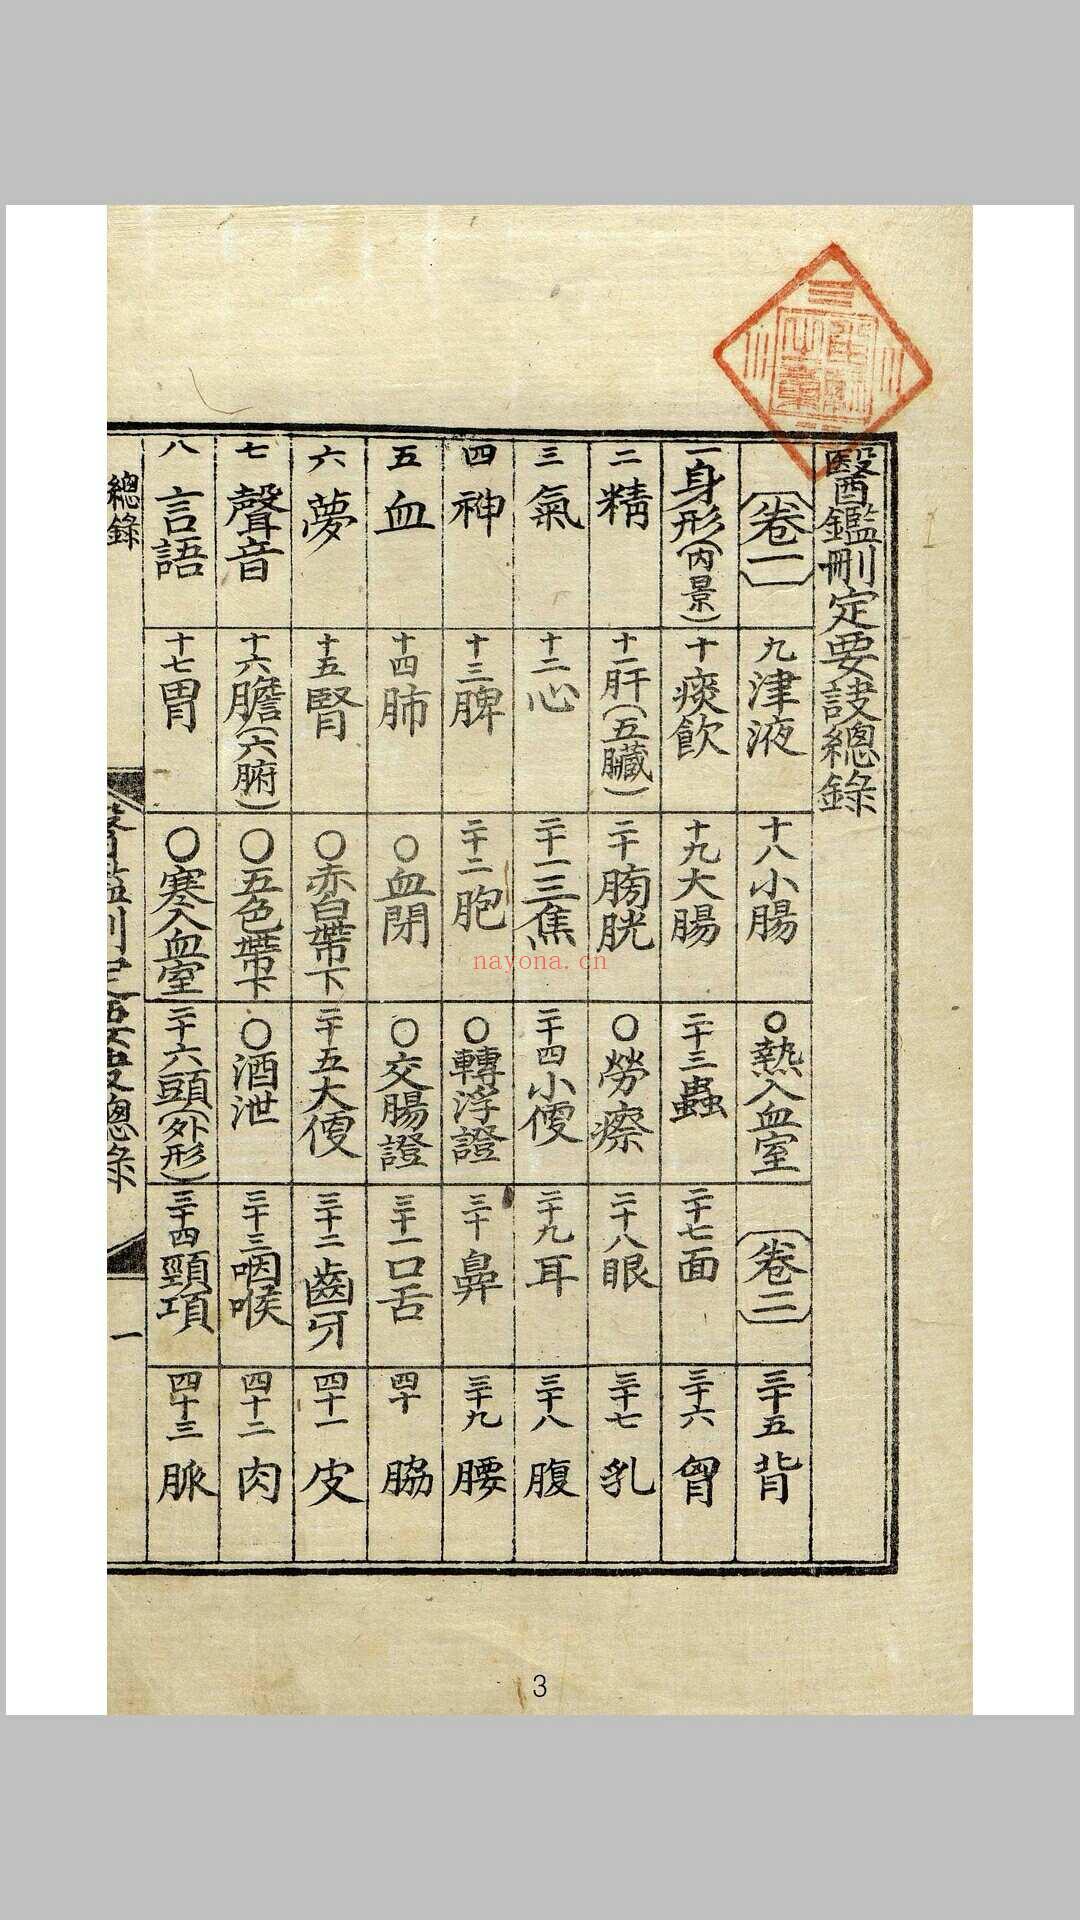 醫鑑刪定要訣總錄
卷一
一身形(內景)
二精
三氣
四神
五血
六夢
七聲音
八言語
九津液
十痰飮
十一肝(五臟)
十二心
十三脾
十四肺
十五腎
十六膽(六腑)
十七胃
十八小腸
十九大腸
二十膀胱
二十一三焦
二十二胞
○血閉
○赤白帶下
○五色帶下
○寒入血室
○熱入血室
二十三蟲
○勞瘵
二十四小便
○轉浮證
○交腸證
二十五大便
○酒泄
二十六頭(外形)
卷二
二十七面
二十八眼
二十九耳
三十鼻
三十一口舌
三十二齒牙
三十三咽喉
三十四頸項
三十五背
三十六胷
三十七乳
三十八腹
三十九腰
四十脇
四十一皮
四十二肉
四十三脈
總錄
醫鑑刪定要訣總錄
一
nayona.cn
3